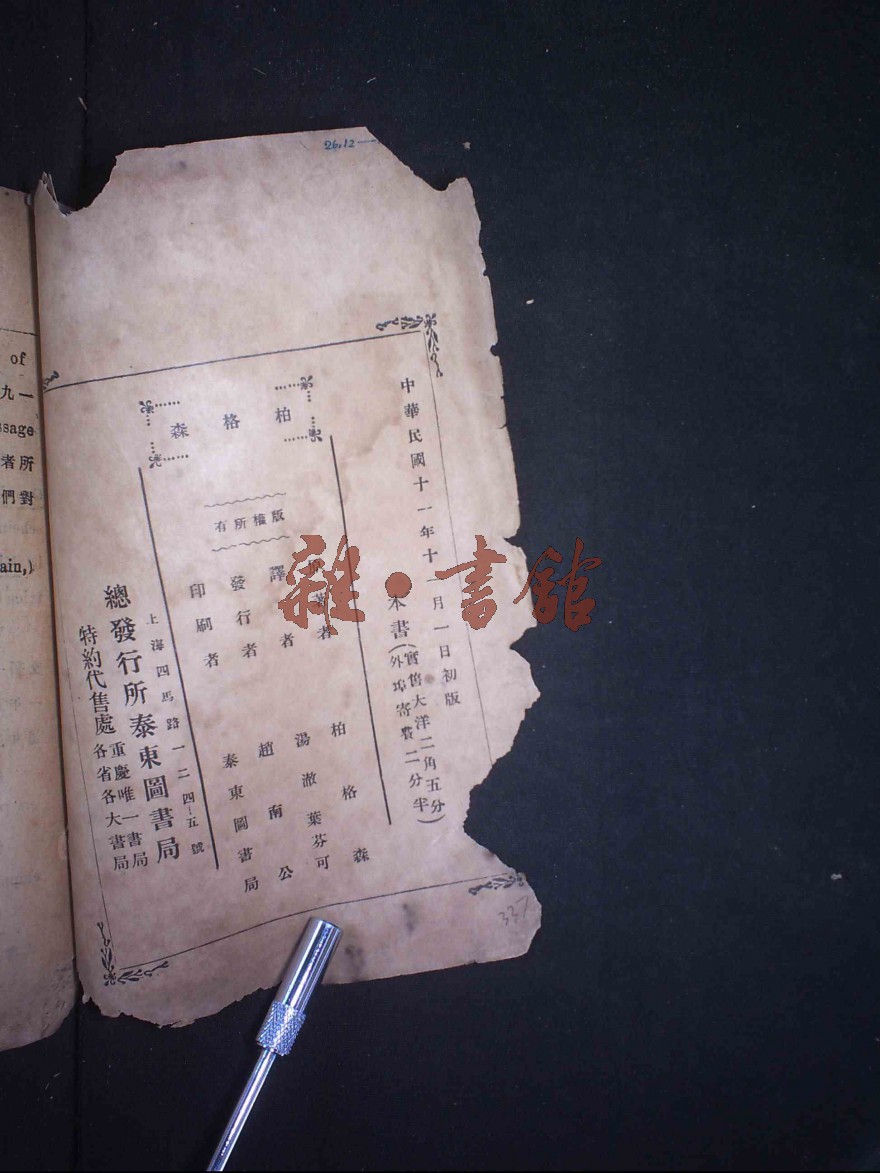 26.12—
中華民國十一年十一月一日初版
本書(實售大洋二角五分
外埠寄費二分半)
柏格森
版權所有
原著者 柏格森
譯者 湯澈葉芬可
發行者 趙南公
印刷者 泰東圖書局
上海四馬路一二四—五號
總發行所泰東圖書局
特約代售處 重慶唯一書局
各省各大書局
337
of
九一
ssage
者所
們對
ain,)
雜·書館